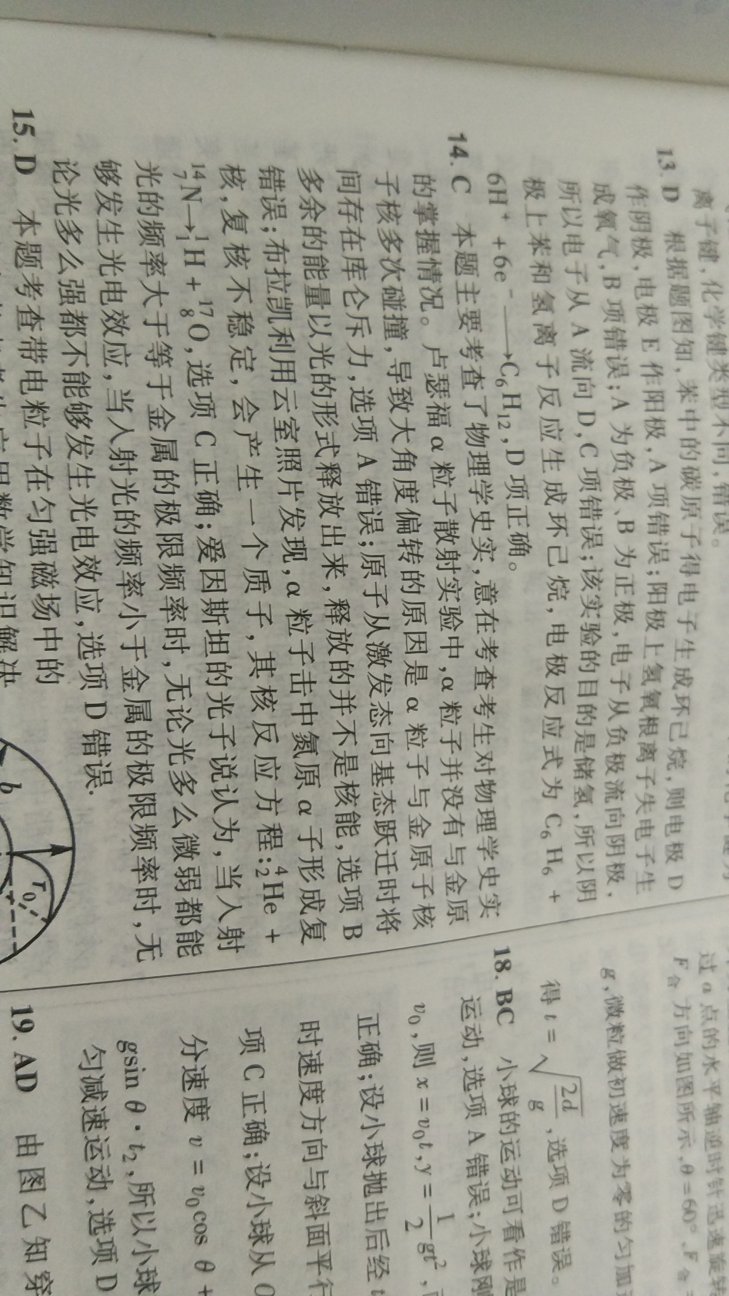 离子键,化学键类型不同,错误。
13. D 根据题图知,苯中的碳原子得电子生成环己烷,则电极 D
作阴极,电极 E 作阳极,A 项错误;阳极上氢氧根离子失电子生
成氧气,B 项错误;A 为负极、B 为正极,电子从负极流向阴极,
所以电子从 A 流向 D,C 项错误;该实验的目的是储氢,所以阴
极上苯和氢离子反应生成环己烷,电极反应式为 C₆H₆ +
6H⁺ + 6e⁻ ⟶ C₆H₁₂,D 项正确。
14. C 本题主要考查了物理学史实,意在考查考生对物理学史实
的掌握情况。卢瑟福 α 粒子散射实验中,α 粒子并没有与金原
子核多次碰撞,导致大角度偏转的原因是 α 粒子与金原子核
间存在库仑斥力,选项 A 错误;原子从激发态向基态跃迁时将
多余的能量以光的形式释放出来,释放的并不是核能,选项 B
错误;布拉凯利用云室照片发现,α 粒子击中氮原 α 子形成复
核,复核不稳定,会产生一个质子,其核反应方程:⁴₂He +
¹⁴₇N→¹₁H + ¹⁷₈O,选项 C 正确;爱因斯坦的光子说认为,当入射
光的频率大于等于金属的极限频率时,无论光多么微弱都能
够发生光电效应,当入射光的频率小于金属的极限频率时,无
论光多么强都不能够发生光电效应,选项 D 错误.
15. D 本题考查带电粒子在匀强磁场中的
应用数学知识解决
b
r₀
过 a 点的水平轴逆时针迅速旋转
F合 方向如图所示,θ=60°,F合=
g,微粒做初速度为零的匀加
得 t = √(2d/g),选项 D 错误。
18. BC 小球的运动可看作是
运动,选项 A 错误;小球刚
v₀,则 x = v₀t,y = 1/2 gt²,
正确;设小球抛出后经 t
时速度方向与斜面平行
项 C 正确;设小球从 O
分速度 v = v₀cos θ +
gsin θ · t₂,所以小球
匀减速运动,选项 D
19. AD 由图乙知穿